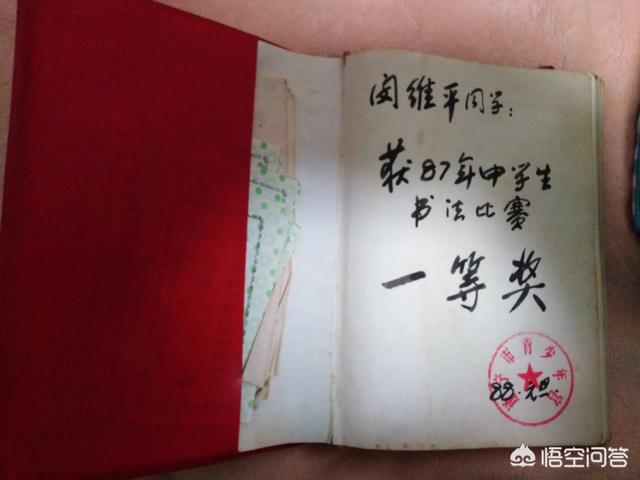 闵维平同学：
获87年中学生
书法比赛
一等奖
市青少年宫
88.元旦.
悟空问答